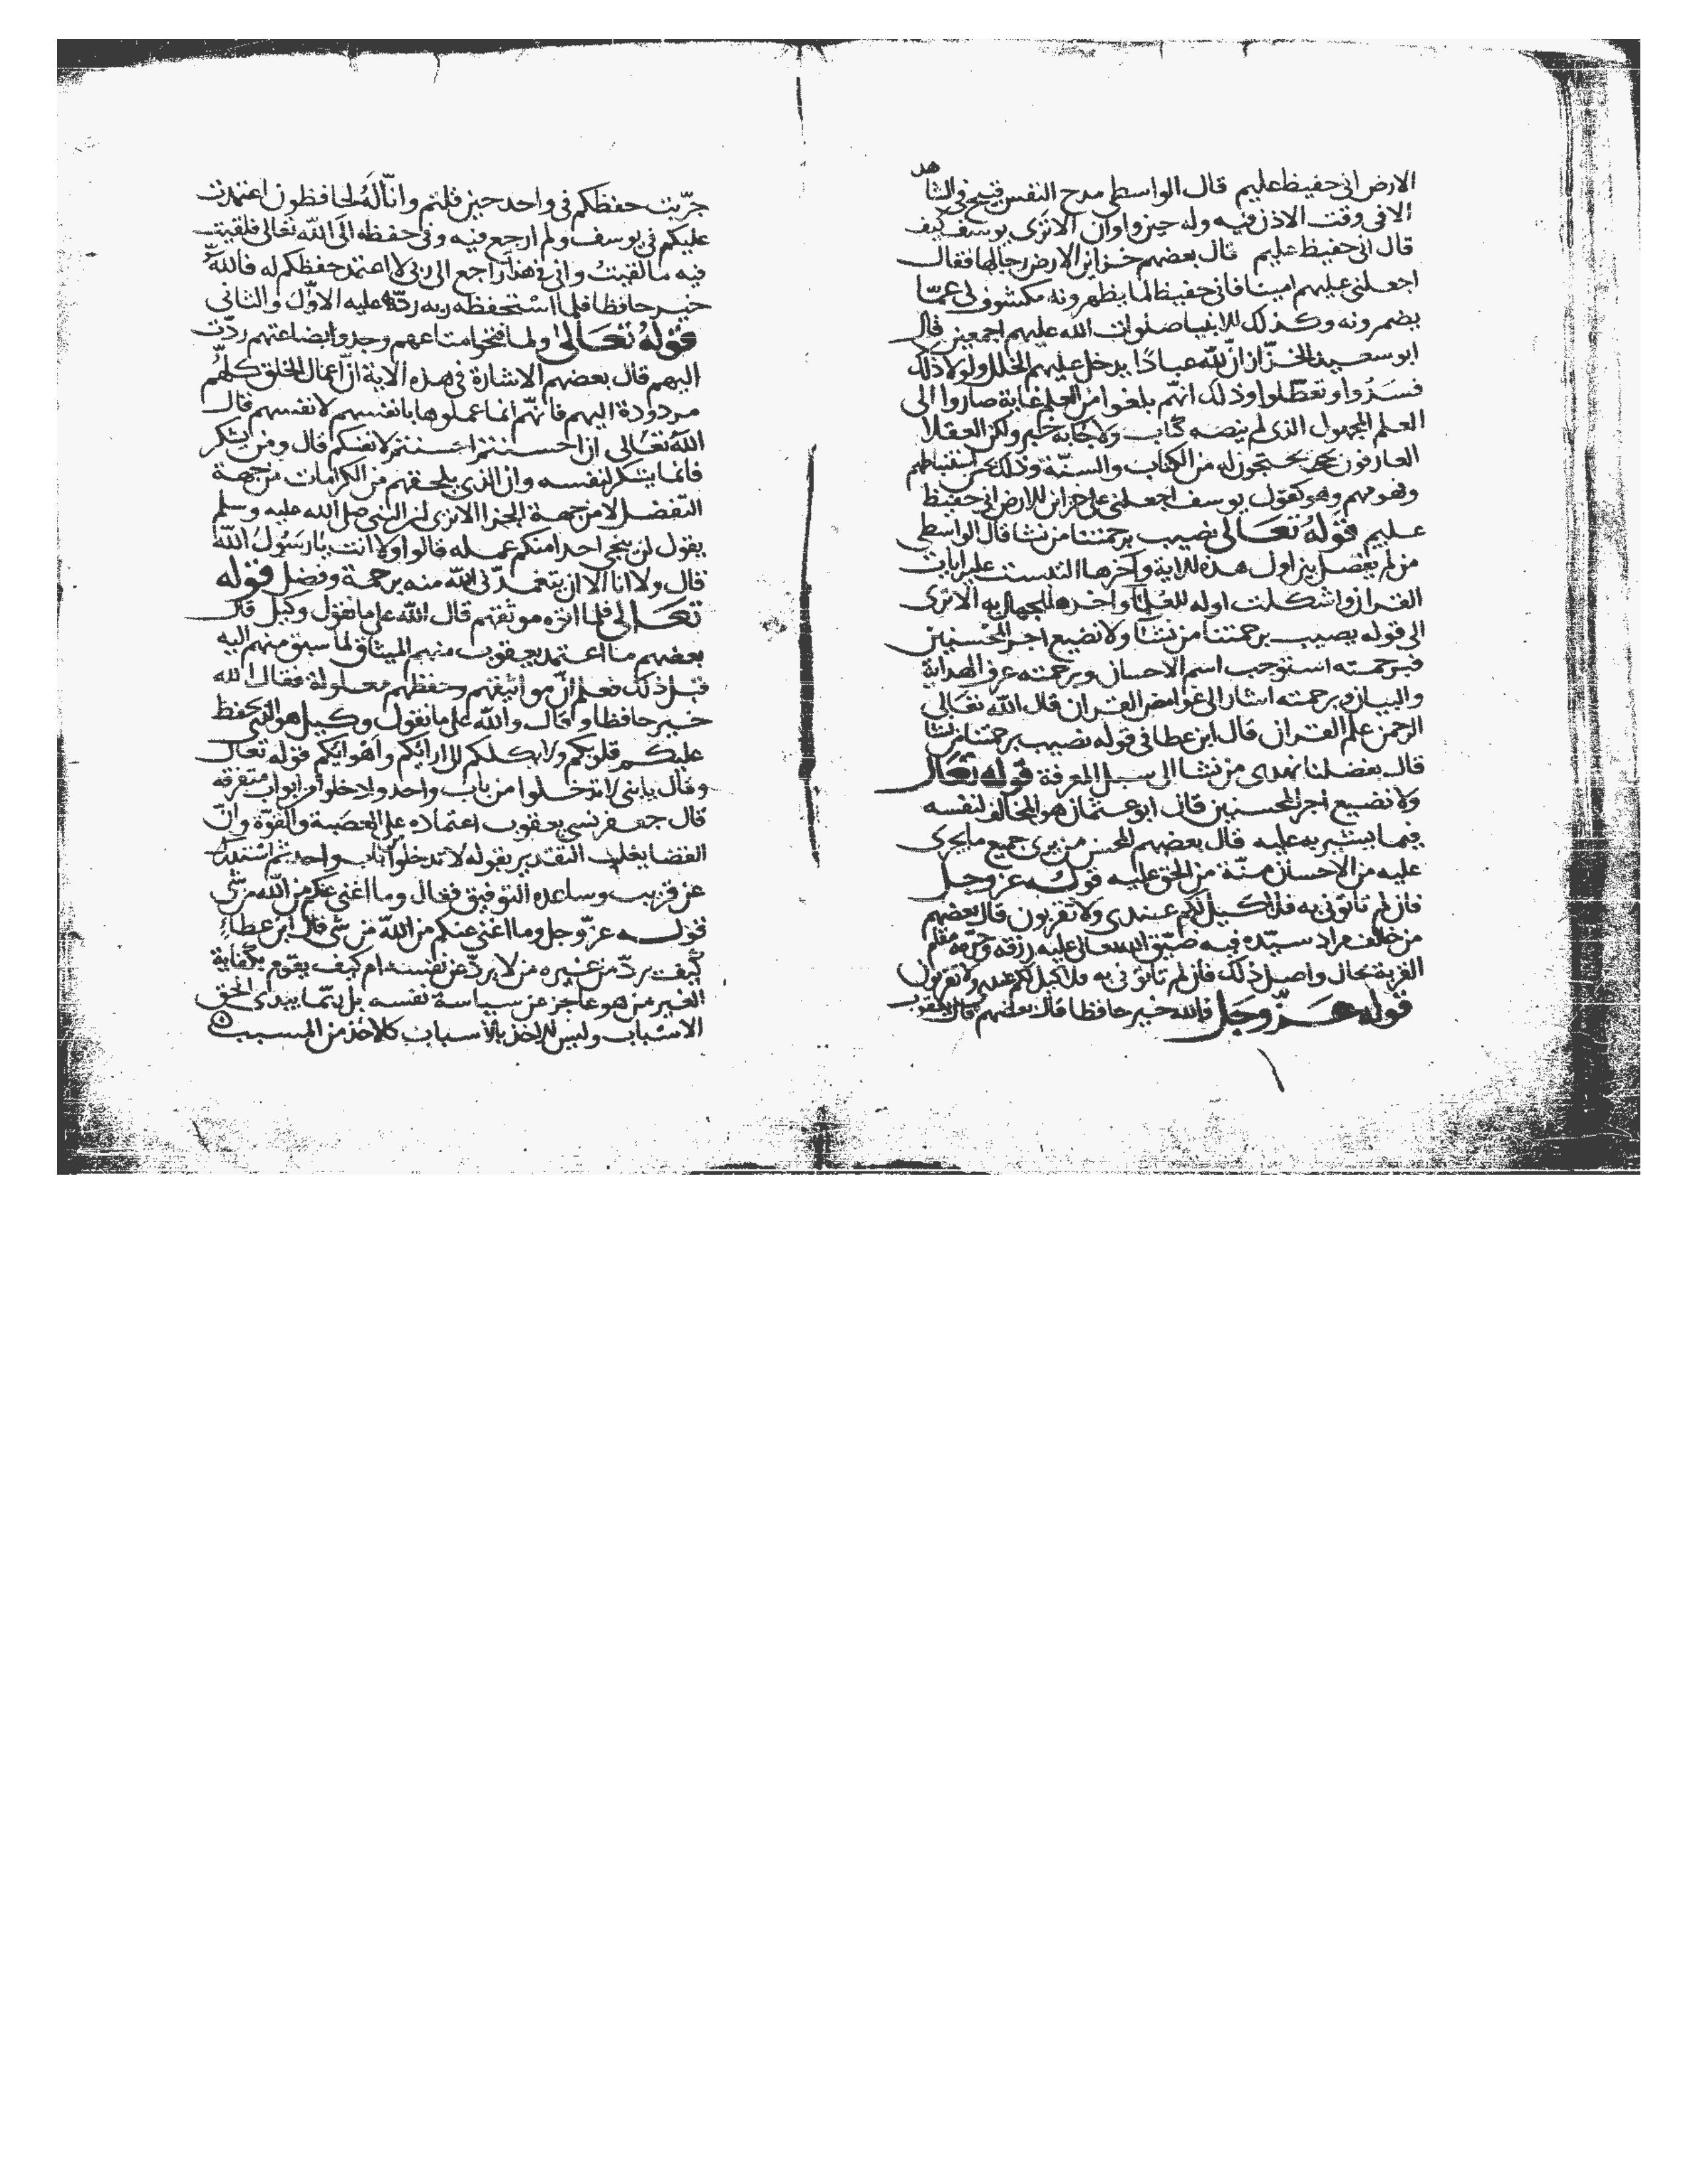 الارض انى حفيظ عليم قال الواسطى مدح النفس قبيح فى الشاهد
الا فى وقت الاذن فيه وله حين واوان الا ترى يوسف كيف
قال انى حفيظ عليم قال بعضهم خزاين الارض رجالها فقال
اجعلنى عليهم امينا فانى حفيظ لما يظهرونه مكشوف لى عمّا
يضمرونه وكذلك الانبيا صلوات الله عليهم اجمعين قال
ابو سعيد الخرّاز انّ لله عبادًا يدخل عليهم الخلل ولولا ذلك
فسدوا وتعطّلوا وذلك انّهم بلغوا من العلم غاية صاروا الى
العلم المجهول الذى لم ينصه كتاب ولا جا به خبر ولكن العقلا
العارفون يحتجون له من الكتاب والسنّة وذلك بحسن استنباطهم
وفهومهم وهو كقول يوسف اجعلنى على خزاين الارض انى حفيظ
عليم قوله تعالى نصيب برحمتنا من نشا قال الواسطى
من لم يفصل بين اول هذه الاية وآخرها التبست عليه ايات
القران واشكلت اوله للعلما واخره للجهال به الا ترى
الى قوله نصيب برحمتنا من نشا ولا نضيع اجر المحسنين
فبرحمته استوجب اسم الاحسان وبرحمته عرف الهداية
والبيان وبرحمته اشار الى غوامض القران قال الله تعالى
الرحمن علم القران قال ابن عطا فى قوله نصيب برحمتنا من نشا
قال بفضلنا نهدى من نشا الى سبيل المعرفة قوله تعالى
ولا نضيع اجر المحسنين قال ابو عثمان هو المخالف لنفسه
فيما يشير به عليه قال بعضهم المحسن من يرى جميع ما يجرى
عليه من الاحسان منّة من الحق عليه قوله عز وجل
فان لم تاتونى به فلا كيل لكم عندى ولا تقربون قال بعضهم
من خالف مراد سيّده فيه ضيّق الله تعالى عليه رزقه وحرمه مقام
القربة بحال واصل ذلك فان لم تاتونى به فلا كيل لكم عندى ولا تقربون
قوله عزّ وجل فالله خير حافظا قال بعضهم قال يعقوب
جرّبت حفظكم فى واحد حين قلتم وانّا له لحافظون اعتمدت
عليكم فى يوسف ولم ارجع فيه وفى حفظه الى الله تعالى فلقيت
فيه ما لقيت وانى فى هذا راجع الى ربى لا اعتمد حفظكم له فالله
خير حافظا فلما استحفظه ربه ردّه عليه الاوّل والثانى
قوله تعالى ولما فتحوا متاعهم وجدوا بضاعتهم ردّت
اليهم قال بعضهم الاشارة فى هذه الاية انّ اعمال الخلق كلّهم
مردودة اليهم فانّهم انما عملوها بانفسهم لانفسهم قال
الله تعالى ان احسنتم احسنتم لانفسكم قال ومن يشكر
فانما يشكر لنفسه وان الذى يلحقهم من الكرامات من جهة
التفضل لا من جهة الجزا الا ترى ان النبى صلى الله عليه وسلم
يقول لن ينجى احدا منكم عمله قالوا ولا انت يا رسول الله
قال ولا انا الا ان يتغمدنى الله منه برحمة وفضل قوله
تعالى فلما اتوه موثقهم قال الله على ما نقول وكيل قال
بعضهم ما اعتمد يعقوب منهم الميثاق لما سبق منهم اليه
قبل ذلك فعلم انّ مواثيقهم وحفظهم معلولة فقال الله
خير حافظا وقال والله على ما نقول وكيل هو الذى يحفظ
عليكم قلوبكم ولا يكلكم الى ارائكم واهوائكم قوله تعالى
وقال يا بنى لا تدخلوا من باب واحد وادخلوا من ابواب متفرقه
قال جعفر نسى يعقوب اعتماده على العصبة والقوّة وانّ
القضا يغلب التقدير بقوله لا تدخلوا من باب واحد ثم استدرك
عن قريب وساعده التوفيق فقال وما اغنى عنكم من الله من شى
قوله عزّ وجل وما اغنى عنكم من الله من شى قال ابن عطاء
كيف يردّ من غيره من لا يردّ عن نفسه ام كيف يقوم بكفاية
الغير من هو عاجز عن سياسة نفسه بل ربّما يبدى الحق
الاسباب وليس الاخذ بالاسباب كالاخذ من المسبب